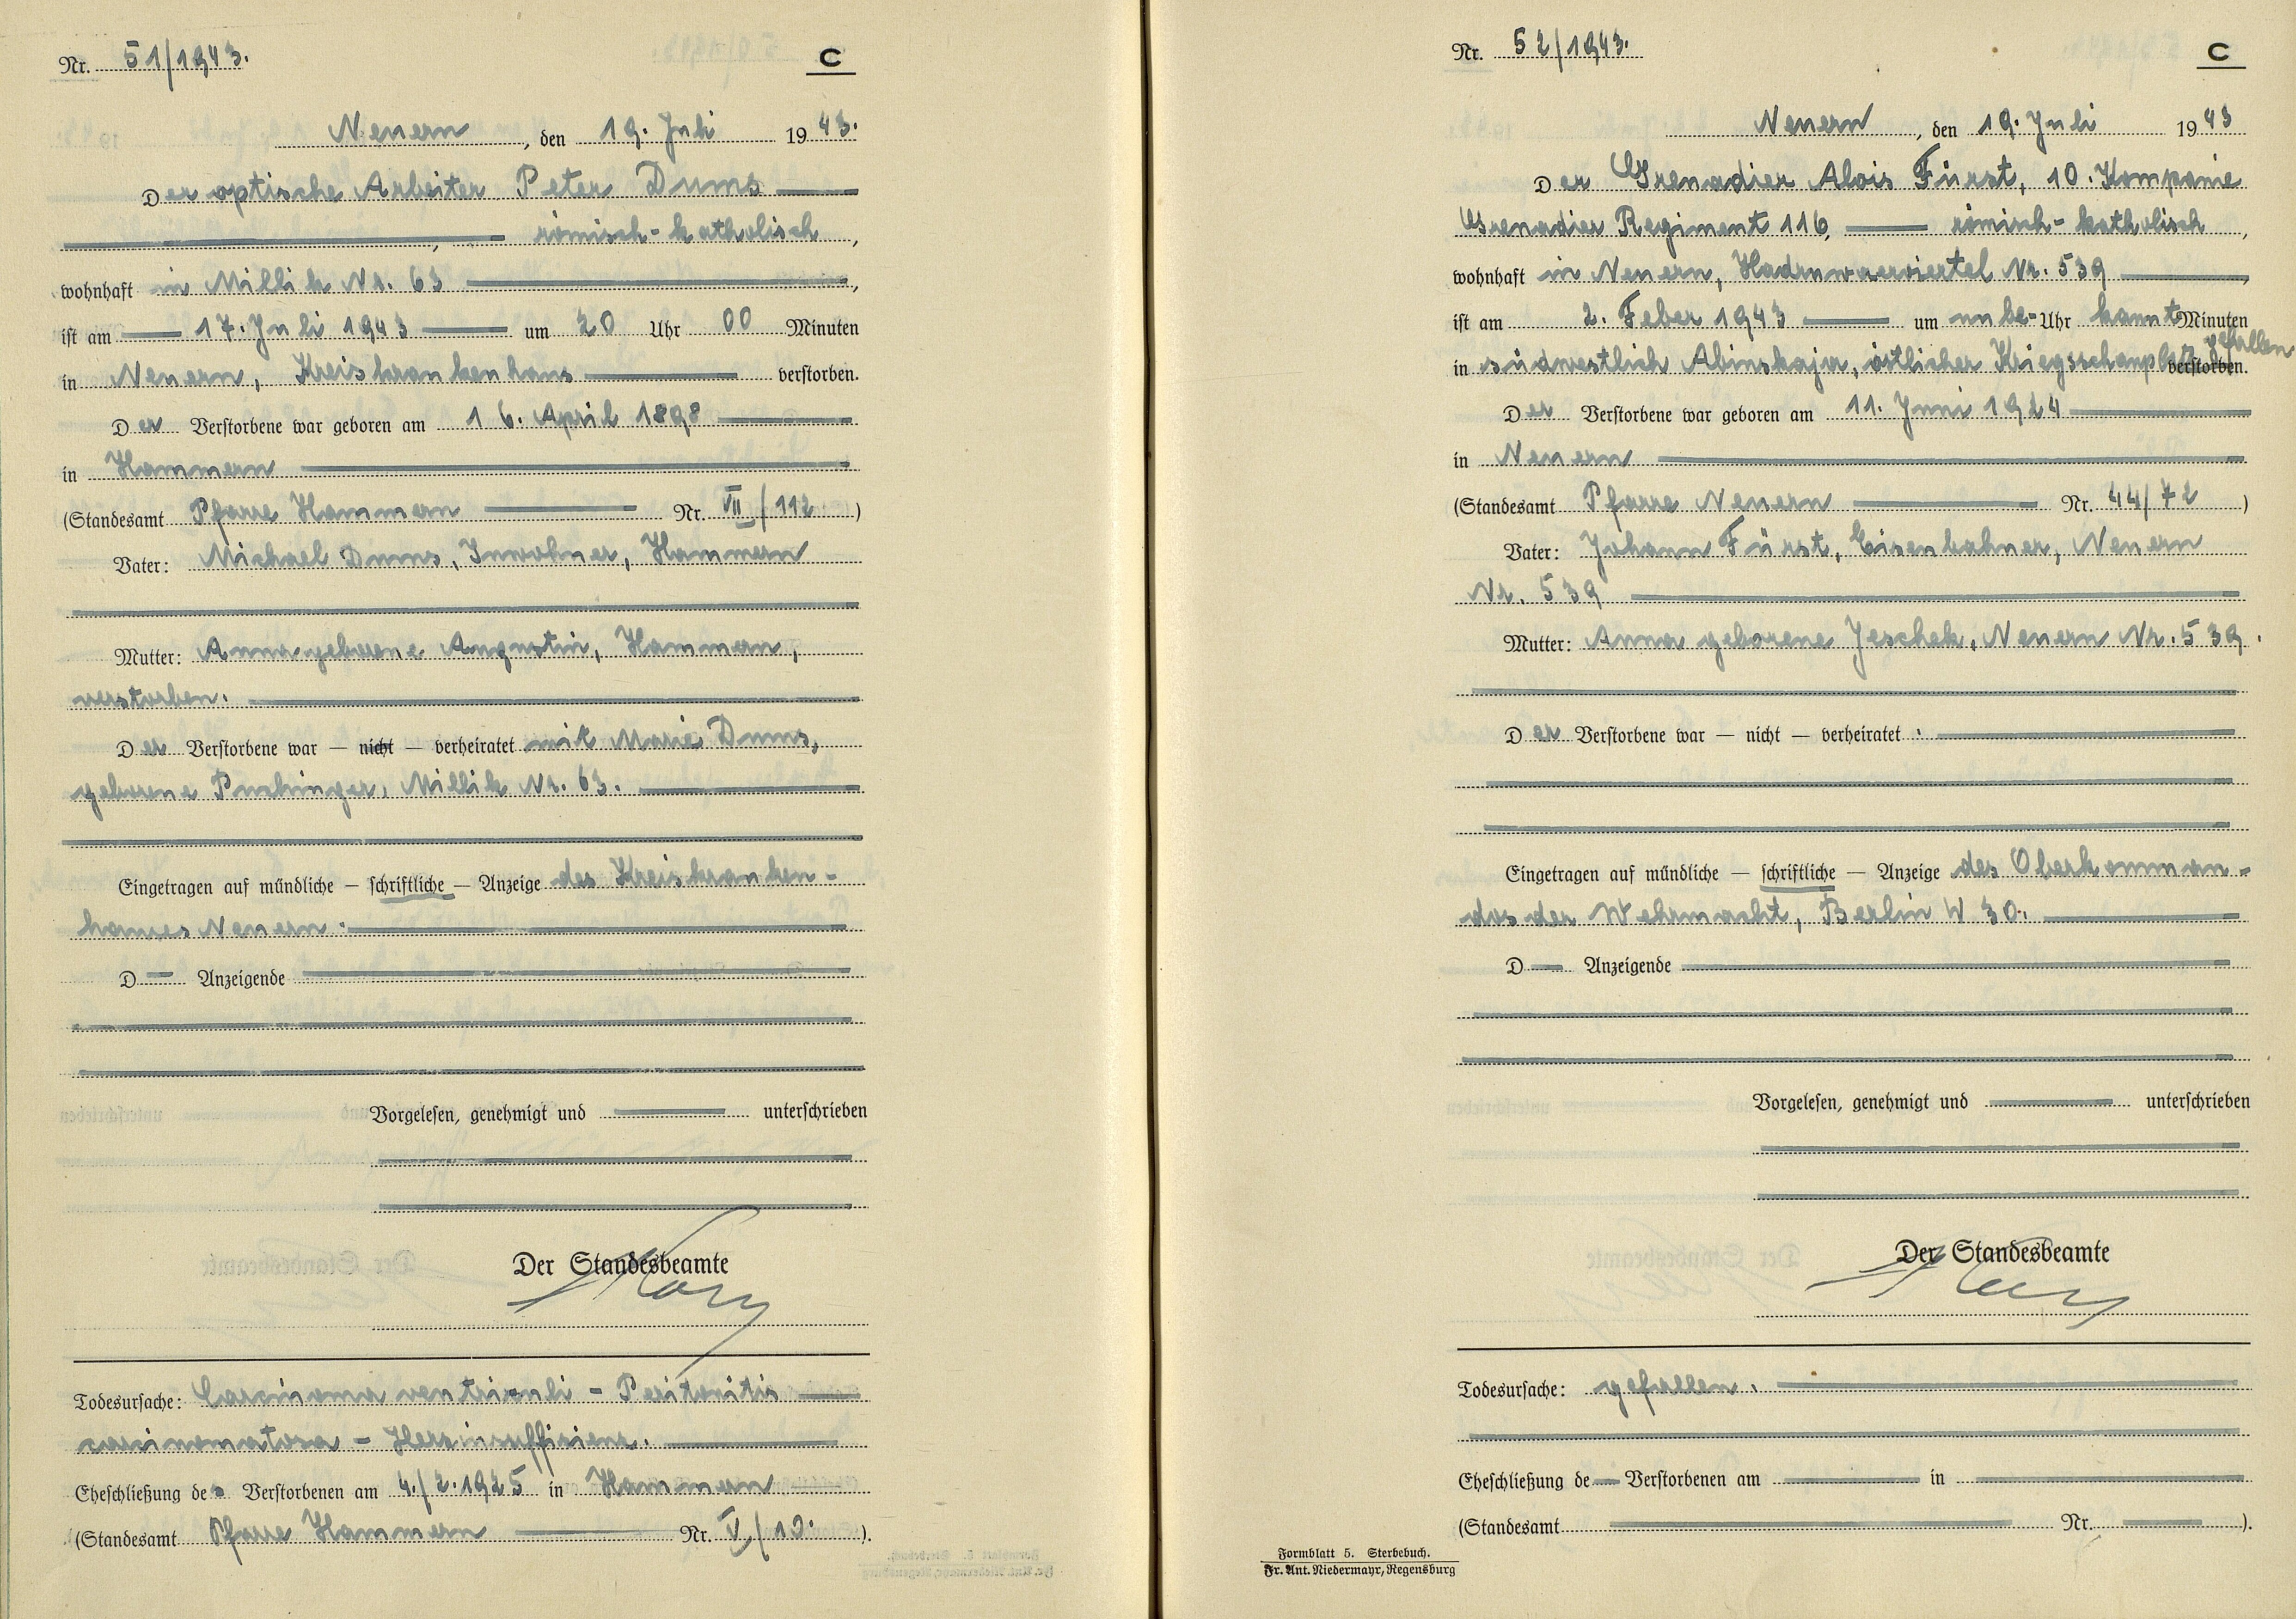 Nr. 51/1943.
C
Neuern, den 19. Juli 1943.
Der optische Arbeiter Peter Dums
, römisch-katholisch,
wohnhaft in Millik Nr. 63,
ist am 17. Juli 1943 um 20 Uhr 00 Minuten
in Neuern, Kreiskrankenhaus verstorben.
Der Verstorbene war geboren am 16. April 1898
in Hammern
(Standesamt Pfarre Hammern Nr. VII/112)
Vater: Michael Dums, Inwohner, Hammern
Mutter: Anna geborene Augustin, Hammern,
verstorben.
Der Verstorbene war — nicht — verheiratet mit Marie Dums,
geborene Puchinger, Millik Nr. 63.
Eingetragen auf mündliche — schriftliche — Anzeige des Kreiskranken-
hauses Neuern.
D Anzeigende
Vorgelesen, genehmigt und unterschrieben
Der Standesbeamte
Todesursache: Carcinoma ventriculi - Peritonitis
carcinomatosa - Herzinsuffizienz.
Eheschließung des Verstorbenen am 4./2.1925 in Hammern
(Standesamt Pfarre Hammern Nr. V/10.).
Nr. 52/1943.
C
Neuern, den 19. Juli 1943
Der Grenadier Alois Fürst, 10. Kompanie
Grenadier Regiment 116, römisch-katholisch,
wohnhaft in Neuern, Nr. 539,
ist am 2. Feber 1943 um unbe- Uhr kannt Minuten
in südwestlich Abinskaja, östlicher Kriegsschauplatz gefallen verstorben.
Der Verstorbene war geboren am 11. Juni 1924
in Neuern
(Standesamt Pfarre Neuern Nr. 44/72)
Vater: Johann Fürst, Eisenbahner, Neuern
Nr. 539
Mutter: Anna geborene Jeschek, Neuern Nr. 539.
Der Verstorbene war — nicht — verheiratet.
Eingetragen auf mündliche — schriftliche — Anzeige des Oberkomman-
dos der Wehrmacht, Berlin W 30.
D Anzeigende
Vorgelesen, genehmigt und unterschrieben
Der Standesbeamte
Todesursache: gefallen.
Eheschließung de Verstorbenen am in
(Standesamt Nr. ).
Formblatt 5. Sterbebuch.
Fr. Ant. Niedermayr, Regensburg